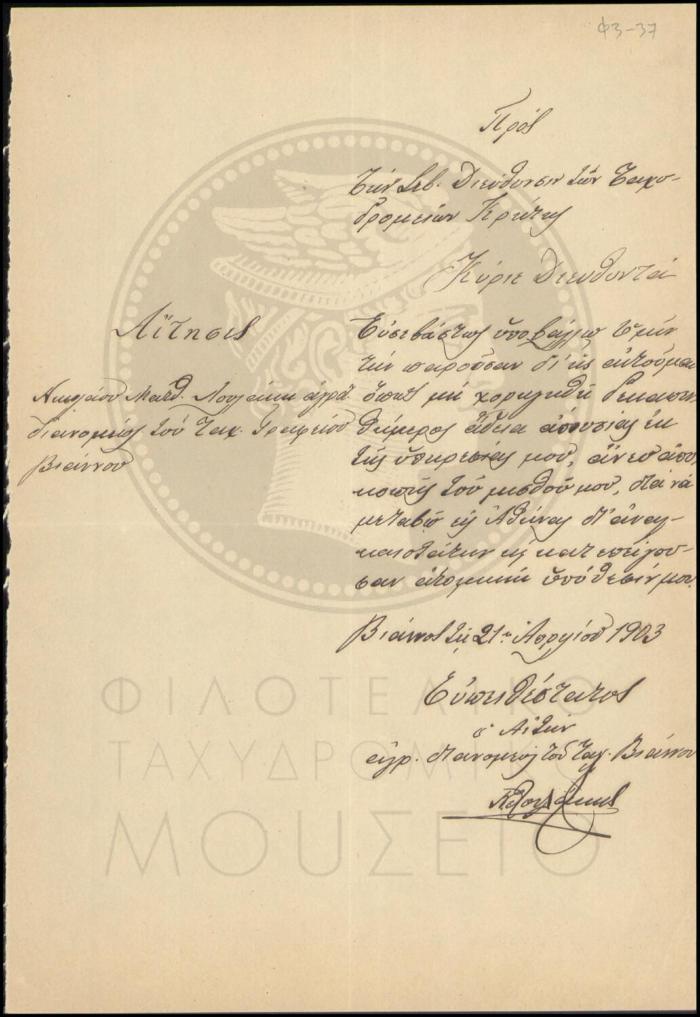 Φ3-37
Πρός
τὴν Σεβ. Διεύθυνσιν τῶν Ταχυ-
δρομείων Κρήτης
Κύριε Διευθυντά
Αἴτησις
Νικολάου Ματθ. αγρο
διανομέως τοῦ Ταχ. Γραφείου
Βιάννου
Εὐσεβάστως ὑποβάλλω ὑμῖν
τὴν παροῦσαν δι' ἧς αἰτοῦμαι
ὅπως μοὶ χορηγηθῇ δεκαπεν
θήμερος ἄδεια ἀπουσίας ἐκ
τῆς ὑπηρεσίας μου, ἄνευ ἀπο
κοπῆς τοῦ μισθοῦ μου, διὰ νὰ
μεταβῶ εἰς Ἀθήνας δι' ἀναγ-
καιοτάτην κς κατεπείγου-
σαν ἀτομικήν ὑπόθεσίν μου.
Βιάννος τῇ 21ῃ Ἀπριλίου 1903
Εὐπειθέστατος
ὁ Αἰτῶν
ἀγρ. διανομεὺς τοῦ Ταχ. Βιάννου
ΦΙΛΟΤΕΛΙΚΟ
ΤΑΧΥΔΡΟΜΙΚΟ
ΜΟΥΣΕΙΟ